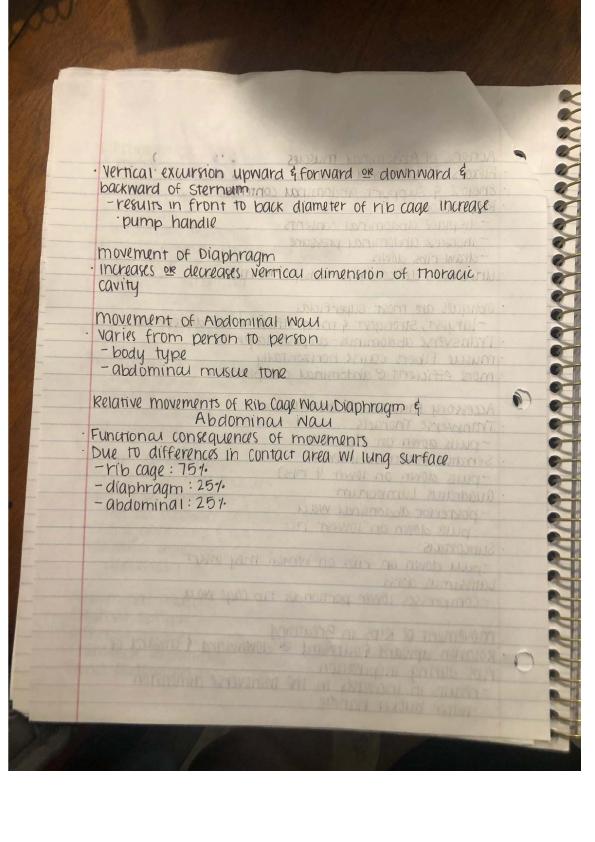 · Vertical excursion upward & forward OR downward &
backward of sternum
- results in front to back diameter of rib cage increase
· pump handle
movement of Diaphragm
· Increases OR decreases vertical dimension of thoracic
cavity
movement of Abdominal Wall
· Varies from person to person
- body type
- abdominal muscle tone
Relative movements of Rib Cage Wall, Diaphragm &
Abdominal Wall
· Functional consequences of movements
· Due to differences in contact area w/ lung surface
- rib cage : 75%
- diaphragm : 25%
- abdominal : 25%